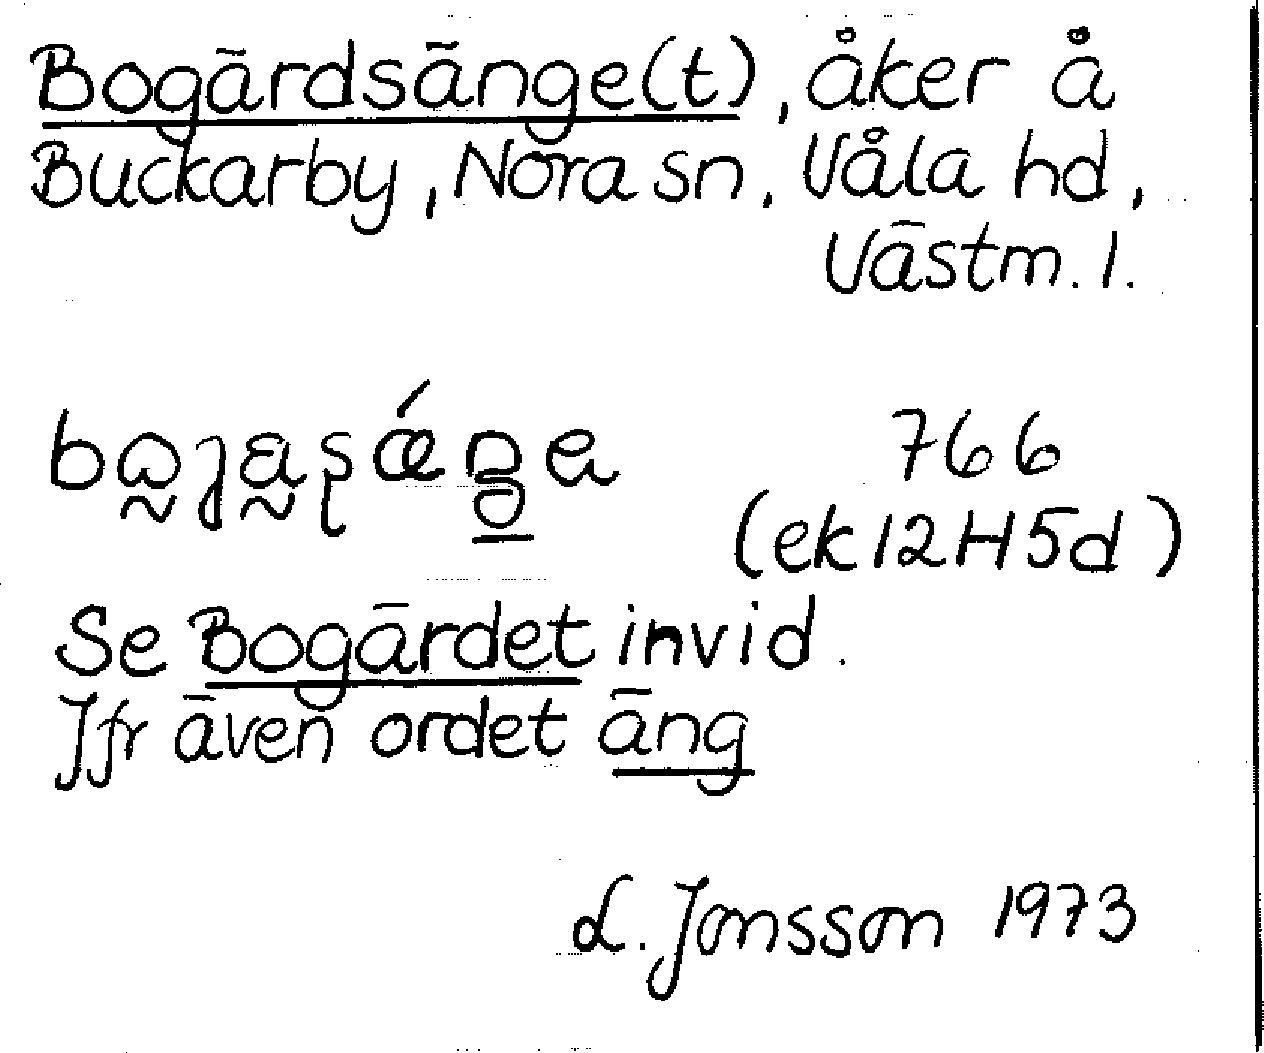 Bogärdsänge(t), åker å
Buckarby, Nora sn, Våla hd,
Västm. l.
766
(ek 12H5d)
Se Bogärdet invid.
Jfr även ordet äng
L. Jonsson 1973